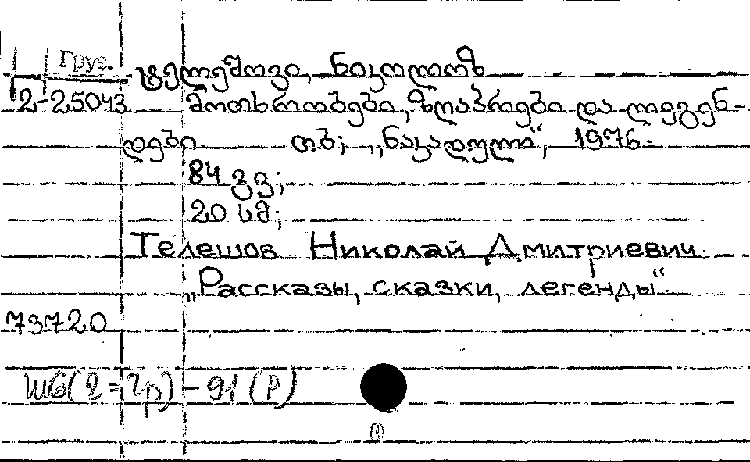 Груз.
ტელეშოვი, ნიკოლოზ
2-25043 მოთხრობები, ზღაპრები და ლეგენ-
დები თბ; „ნაკადული“, 1976.
84 გვ;
20 სმ;
Телешов Николай Дмитриевич
„Рассказы, сказки, легенды“
73720
Ш6(2=Гр)-91(Р)